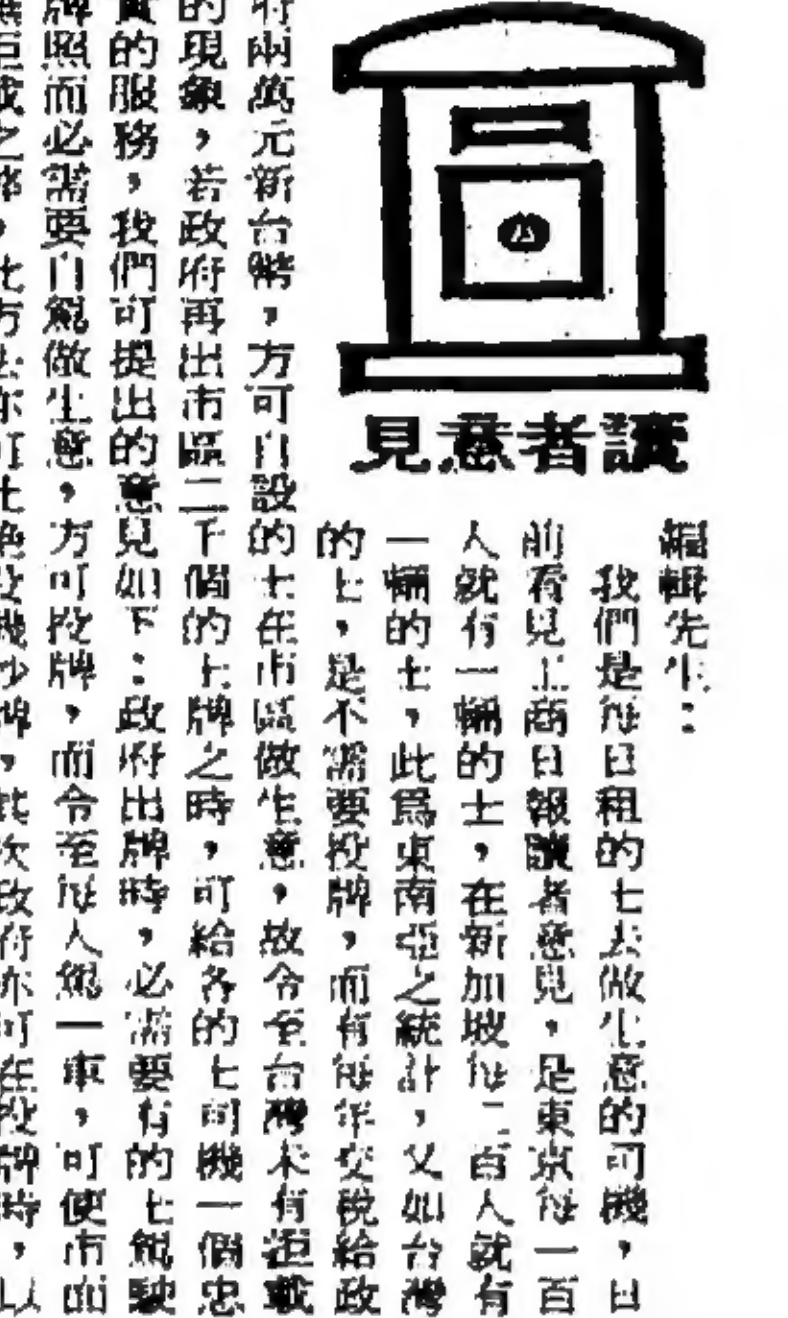 讀者意見
編輯先生：
我們是每日租的士去做生意的司機，日
前看見工商日報讀者意見，是東京每一百
人就有一輛的士，在新加坡每二百人就有
一輛的士，此爲東南亞之統計，又如台灣
的士，是不需要投牌，而有每年交稅給政
府兩萬元新台幣，方可自設的士在市區做生意，故令至台灣未有拒載
的現象，若政府再出市區二千個的士牌之時，可給各的士司機一個忠
實的服務，我們可提出的意見如下：政府出牌時，必需要有的士駕駛
牌照而必需要自駕做生意，方可投牌，而令至每人駕一車，可使市面
無拒載之 ，此方法亦可 投機炒牌，其次政府亦可在投牌時，以